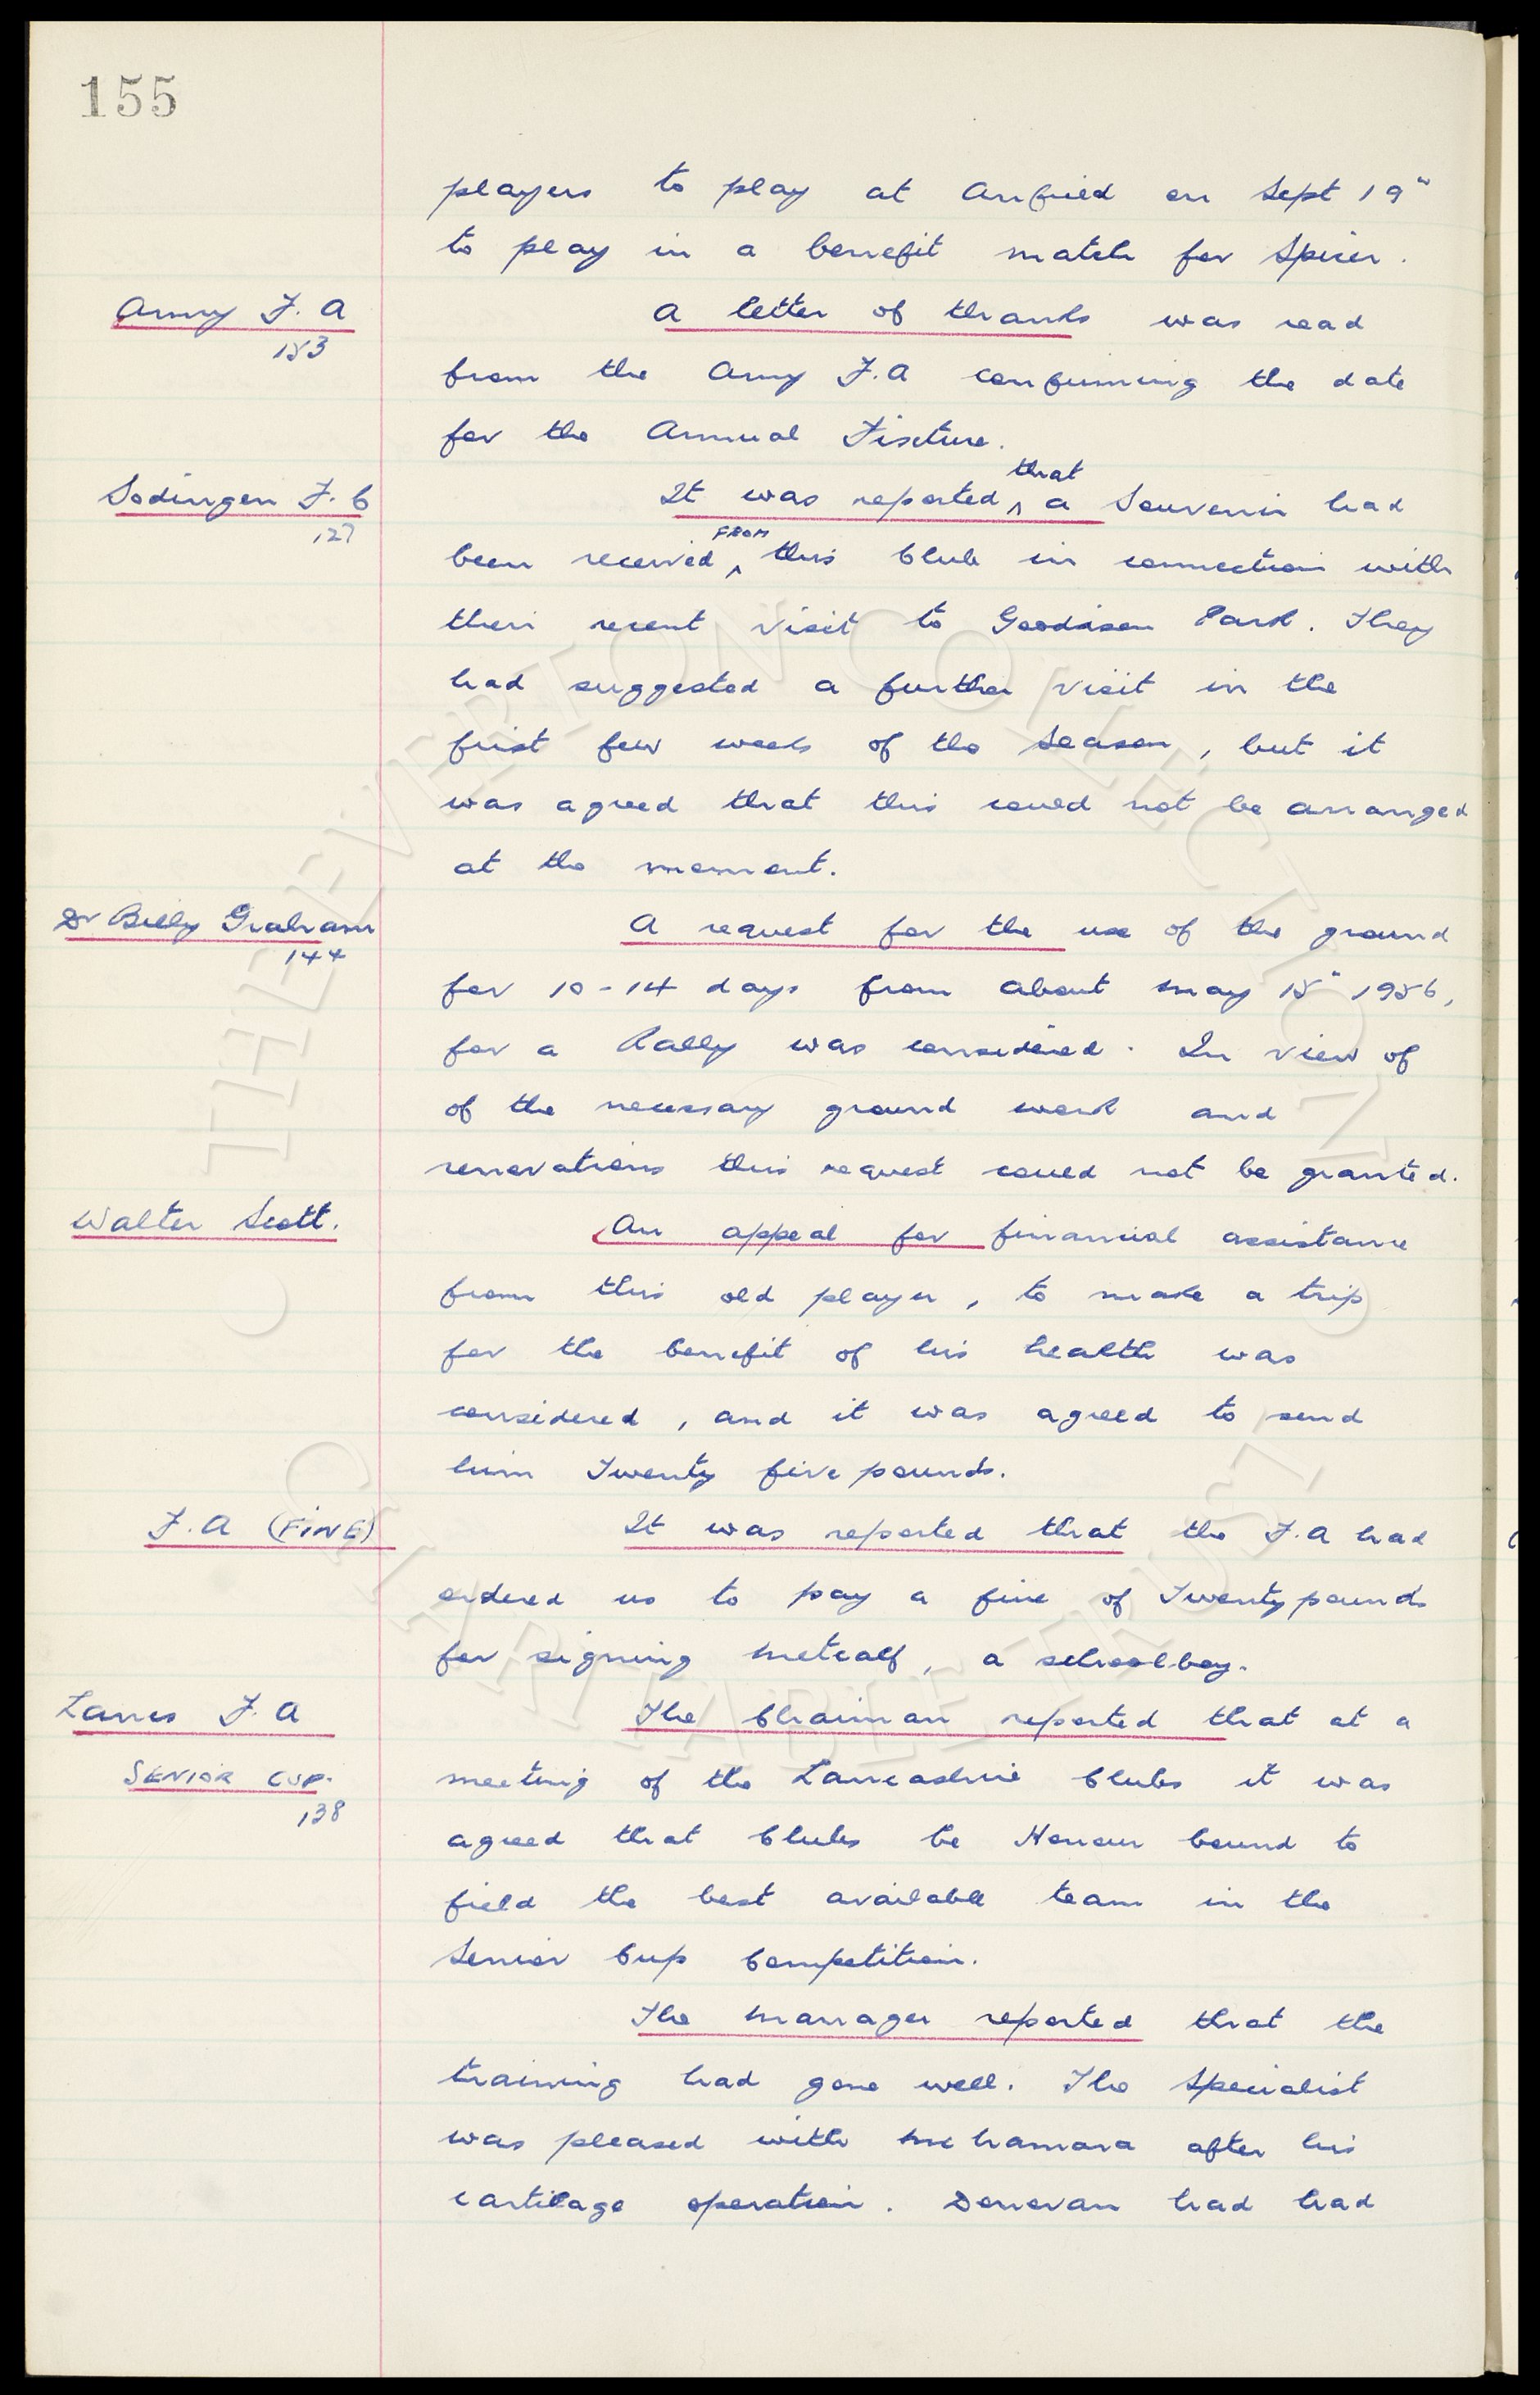 155
players to play at Anfield on Sept 19"
to play in a benefit match for Spicer.
Army F. A
153
A letter of thanks was read
from the Army F.A confirming the date
for the Annual Fixture.
Sodingen F. C
127
It was reported ^ that a Souvenir had
been received ^ FROM this Club in connection with
their recent visit to Goodison Park. They
had suggested a further visit in the
first few weeks of the Season, but it
was agreed that this could not be arranged
at the moment.
Dr Billy Graham
144
A request for the use of the ground
for 10-14 days from about May 15" 1956,
for a Rally was considered. In view of
of the necessary ground work and
renovations this request could not be granted.
Walter Scott.
An appeal for financial assistance
from this old player, to make a trip
for the benefit of his health was
considered, and it was agreed to send
him Twenty five pounds.
F.A (FINE)
It was reported that the F.A had
ordered us to pay a fine of Twenty pounds
for signing Metcalf, a schoolboy.
Lancs F.A
SENIOR CUP.
138
The Chairman reported that at a
meeting of the Lancashire Clubs it was
agreed that Clubs be Honour bound to
field the best available team in the
Senior Cup Competition.
The Manager reported that the
training had gone well. The Specialist
was pleased with McNamara after his
cartilage operation. Donovan had had
© THE EVERTON COLLECTION
CHARITABLE TRUST